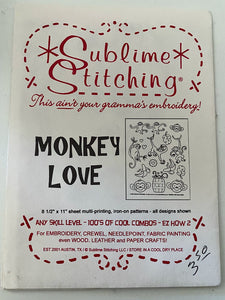 Sublime
Stitching®
This ain't your gramma's embroidery!
MONKEY
LOVE
8 1/2" x 11" sheet multi-printing, iron-on patterns - all designs shown
ANY SKILL LEVEL - 100'S OF COOL COMBOS - EZ HOW 2
For EMBROIDERY, CREWEL, NEEDLEPOINT, FABRIC PAINTING
even WOOD, LEATHER and PAPER CRAFTS!
EST.2001 AUSTIN, TX / © Sublime Stitching LLC / STORE IN A COOL DRY PLACE